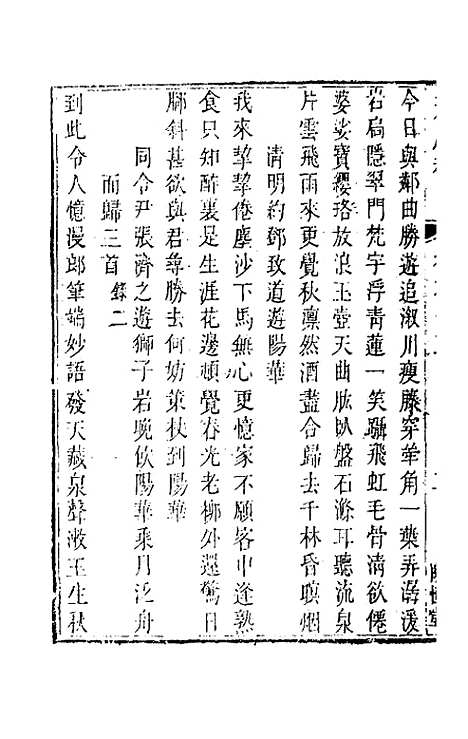 今日與鄰曲勝遊追淑川瘦藤穿犖角一葉弄潺湲
岩扃隱翠門梵宇浮靑蓮一笑躡飛虹毛骨淸欲僊
婆娑寶纓珞放浪玉壺天曲肱臥盤石滌耳聽流泉
片雲飛雨來更覺秋凛然酒盡合歸去千林昏暝烟
淸明約鄧致道遊陽華
我來挈挈倦塵沙下馬無心更憶家不願客中逢熟
食只知醉裏是生涯花邊頓覺春光老柳外還驚日
脚斜甚欲與君尋勝去何妨策杖到陽華
同令尹張濟之遊獅子岩晚飲陽華乘月泛舟
而歸三首 錄二
到此令人憶漫郎筆端妙語發天藏泉聲漱玉生秋